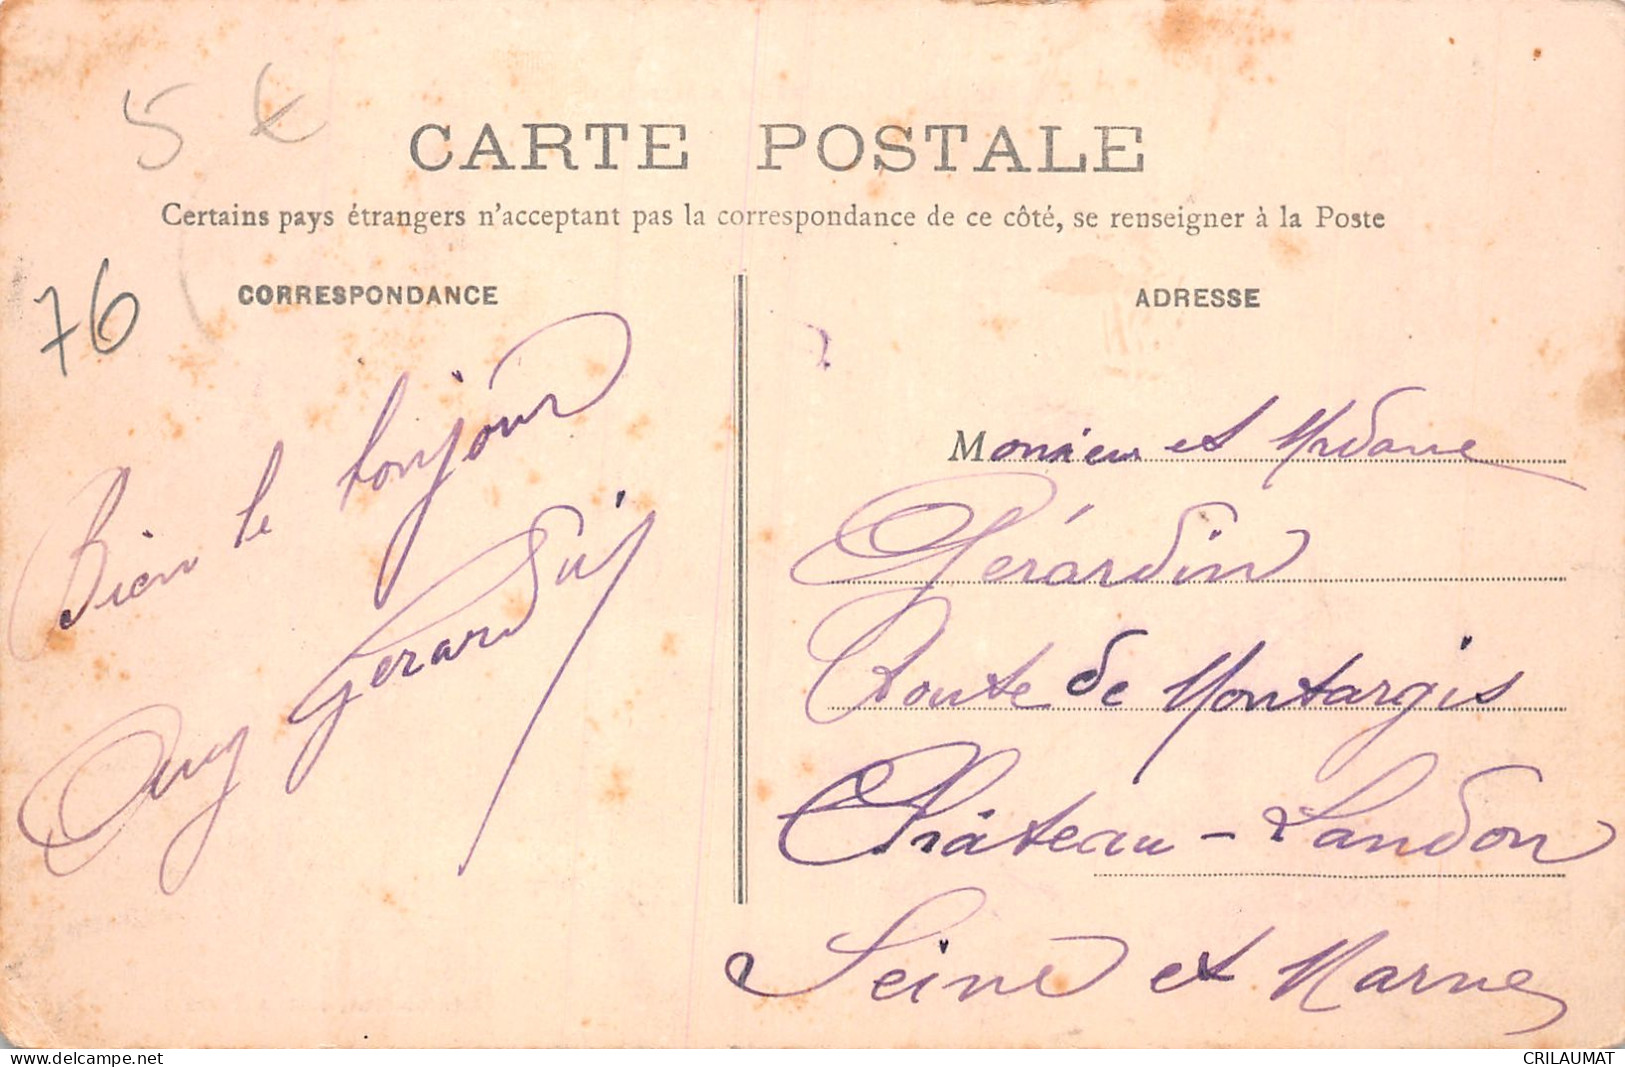 5 €
CARTE POSTALE
Certains pays étrangers n'acceptent pas la correspondance de ce côté, se renseigner à la Poste
76
CORRESPONDANCE
Bien le bonjour
Gérardin
ADRESSE
Monsieur et Madame
Gérardin
Route de Montargis
Château-Landon
Seine et Marne
www.delcampe.net
CRILAUMAT